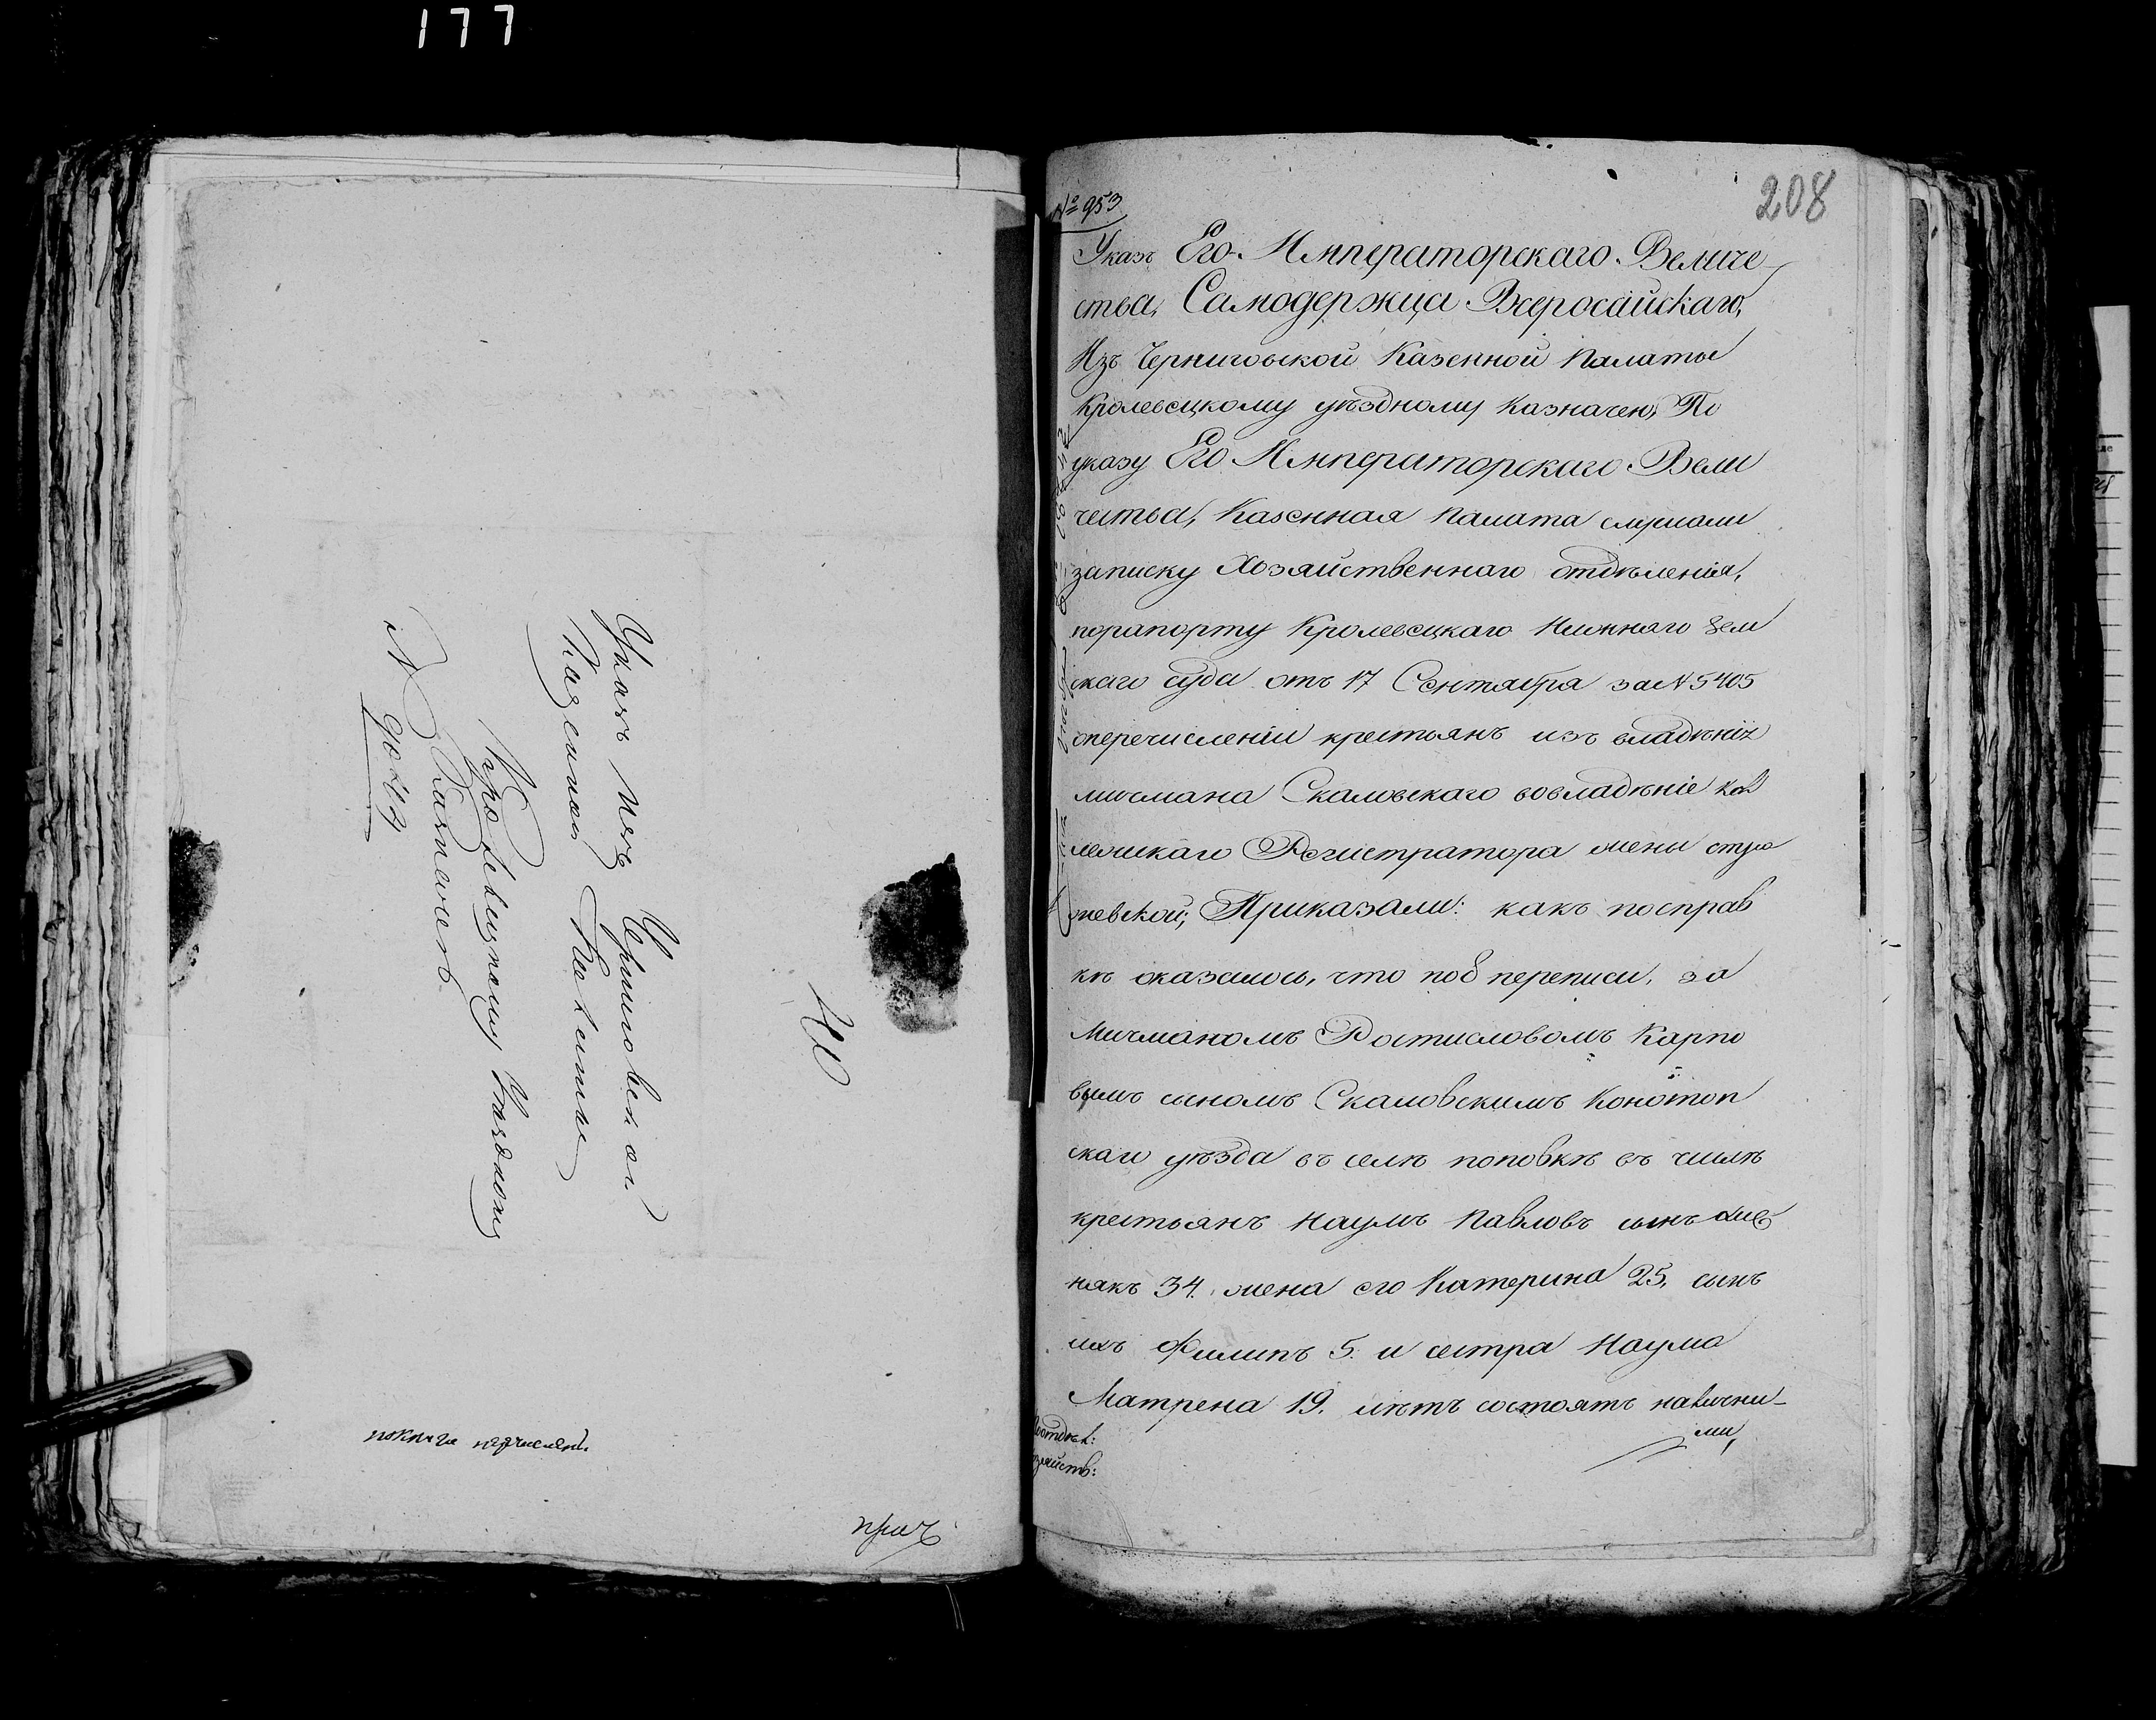 177
Указъ изъ Черниговской
Казенной Палаты
Кролевецкому уѣздному
Казначею
40
покниге начислен.
208
№ 953
Указъ Его Императорскаго Величе
ства, Самодержца Всеросайскаго,
Изъ Черниговской Казенной Палаты
Кролевецкому уѣздному казначею, По
указу Его Императорскаго Вели
чества, Казенная палата слушали
записку Хозяйственнаго отдѣленія,
порапорту Кролевецкаго Нижняго Зем
скаго суда отъ 17 Сентября за № 5405
оперечисленіи крестьянъ изъ владѣнія
мичмана Скаловскаго вовладѣніе кол
лежскаго Регистратора жены
жевской; Приказали: какъ посправ
кѣ оказалось, что по 8 переписи, за
Мичманомъ Ростисловомъ Карпо
вымъ сыномъ Скаловскимъ Конотоп
скаго уѣзда въ селѣ поповкѣ въ числѣ
крестьянъ Наумъ Павловъ сынъ
някъ 34. жена его Катерина 25, сынъ
ихъ Филипъ 5. и сестра Наума
Матрена 19. лѣтъ состоятъ наличны-
ми,